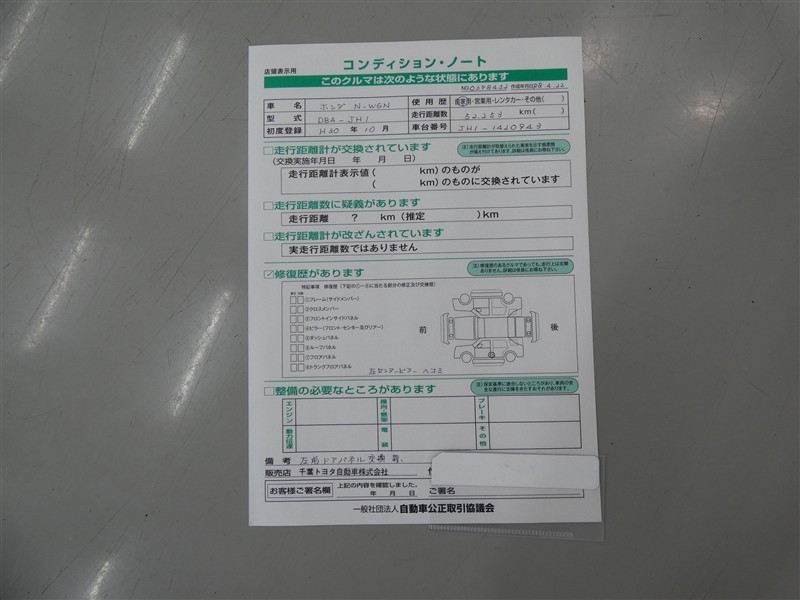 店頭表示用
コンディション・ノート
このクルマは次のような状態にあります
車名 ホンダ N-WGN 使用歴 自家用・営業用・レンタカー・その他( )
型式 DBA-JH1 走行距離数 52,253 km( )
初度登録 H30年10月 車台番号 JH1-1420943
□走行距離計が交換されています
(交換実施年月日 年 月 日)
走行距離計表示値( km)のものが
( km)のものに交換されています
□走行距離数に疑義があります
走行距離 ? km(推定 )km
□走行距離計が改ざんされています
実走行距離数ではありません
☑修復歴があります
特記事項 修復歴(下記の①~⑧に当たる部分の修正及び交換歴)
①フレーム(サイドメンバー)
②クロスメンバー
③フロントインサイドパネル
④ピラー(フロント・センター及びリアー)
⑤ダッシュパネル
⑥ルーフパネル
⑦フロアパネル
⑧トランクフロアパネル
前 後
左センターピラー ヘコミ
□整備の必要なところがあります
エンジン 操向・懸架 ブレーキ
動力伝達 電装 その他
備考 左前ドアパネル交換 有、
販売店 千葉トヨタ自動車株式会社
お客様ご署名欄 上記の内容を確認しました。
年 月 日 ご署名
一般社団法人 自動車公正取引協議会